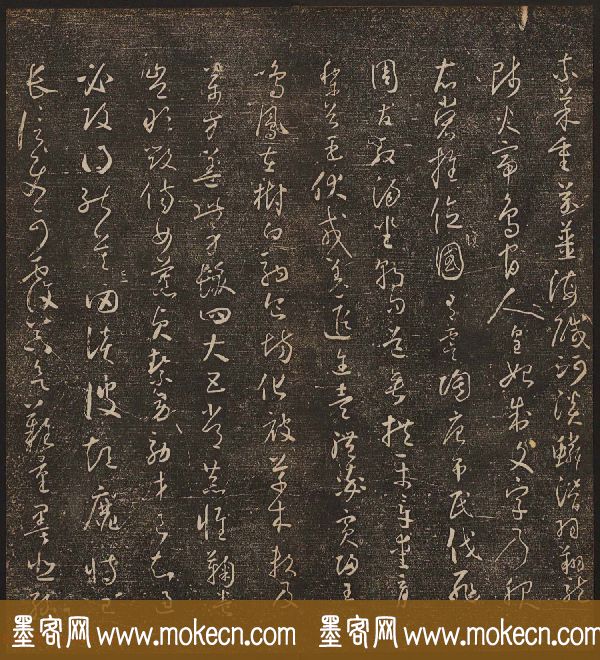 柰菜重芥薑海鹹河淡鱗潛羽翔龍
師火帝鳥官人皇始制文字乃服
衣裳推位讓國有虞陶唐弔民伐罪
周發殷湯坐朝問道垂拱平章愛育
黎首臣伏戎羌遐邇壹體率賓歸王
鳴鳳在樹白駒食場化被草木賴及
萬方蓋此身髮四大五常恭惟鞠養
豈敢毀傷女慕貞絜男效才良知過
必改得能莫忘罔談彼短靡恃己
長信使可覆器欲難量墨悲絲
墨客网 www.mokecn.com 墨客网 www.mokecn.com